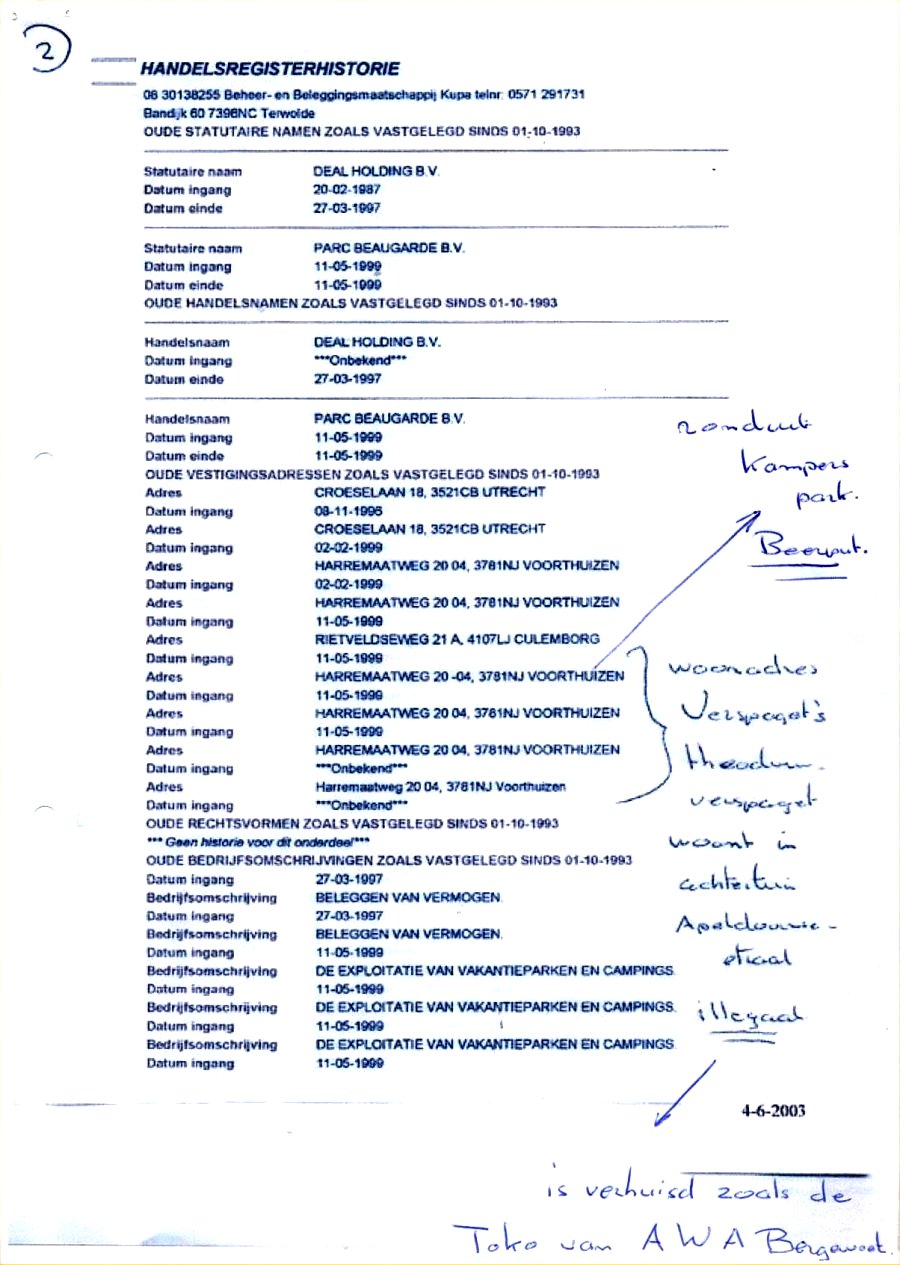 2
HANDELSREGISTERHISTORIE
08 30138255 Beheer- en Beleggingsmaatschappij Kupa telnr: 0571 291731
Bandijk 60 7396NC Terwolde
OUDE STATUTAIRE NAMEN ZOALS VASTGELEGD SINDS 01-10-1993
Statutaire naam DEAL HOLDING B.V.
Datum ingang 20-02-1987
Datum einde 27-03-1997
Statutaire naam PARC BEAUGARDE B.V.
Datum ingang 11-05-1999
Datum einde 11-05-1999
OUDE HANDELSNAMEN ZOALS VASTGELEGD SINDS 01-10-1993
Handelsnaam DEAL HOLDING B.V.
Datum ingang ***Onbekend***
Datum einde 27-03-1997
Handelsnaam PARC BEAUGARDE B.V.
Datum ingang 11-05-1999
Datum einde 11-05-1999
OUDE VESTIGINGSADRESSEN ZOALS VASTGELEGD SINDS 01-10-1993
Adres CROESELAAN 18, 3521CB UTRECHT
Datum ingang 08-11-1996
Adres CROESELAAN 18, 3521CB UTRECHT
Datum ingang 02-02-1999
Adres HARREMAATWEG 20 04, 3781NJ VOORTHUIZEN
Datum ingang 02-02-1999
Adres HARREMAATWEG 20 04, 3781NJ VOORTHUIZEN
Datum ingang 11-05-1999
Adres RIETVELDSEWEG 21 A, 4107LJ CULEMBORG
Datum ingang 11-05-1999
Adres HARREMAATWEG 20 -04, 3781NJ VOORTHUIZEN
Datum ingang 11-05-1999
Adres HARREMAATWEG 20 04, 3781NJ VOORTHUIZEN
Datum ingang 11-05-1999
Adres HARREMAATWEG 20 04, 3781NJ VOORTHUIZEN
Datum ingang ***Onbekend***
Adres Harremaatweg 20 04, 3781NJ Voorthuizen
Datum ingang ***Onbekend***
OUDE RECHTSVORMEN ZOALS VASTGELEGD SINDS 01-10-1993
*** Geen historie voor dit onderdeel***
OUDE BEDRIJFSOMSCHRIJVINGEN ZOALS VASTGELEGD SINDS 01-10-1993
Datum ingang 27-03-1997
Bedrijfsomschrijving BELEGGEN VAN VERMOGEN.
Datum ingang 27-03-1997
Bedrijfsomschrijving BELEGGEN VAN VERMOGEN.
Datum ingang 11-05-1999
Bedrijfsomschrijving DE EXPLOITATIE VAN VAKANTIEPARKEN EN CAMPINGS.
Datum ingang 11-05-1999
Bedrijfsomschrijving DE EXPLOITATIE VAN VAKANTIEPARKEN EN CAMPINGS.
Datum ingang 11-05-1999
Bedrijfsomschrijving DE EXPLOITATIE VAN VAKANTIEPARKEN EN CAMPINGS.
Datum ingang 11-05-1999
Kampers
park.
Beerput.
woonadres
Verspaget's
verspaget
woont in
achtertuin
straat
illegaal
4-6-2003
is verhuisd zoals de
Toko van AWA